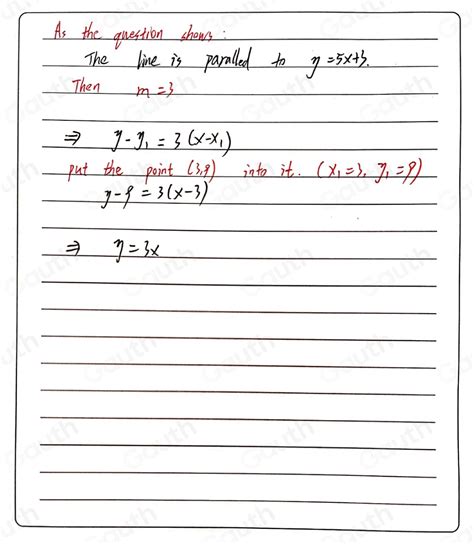 As the question shows:
The line is paralled to y = 5x+3.
Then m = 3
⇒ y - y₁ = 3(x-x₁)
put the point (3,9) into it. (x₁ = 3, y₁ = 9)
y - 9 = 3(x-3)
⇒ y = 3x